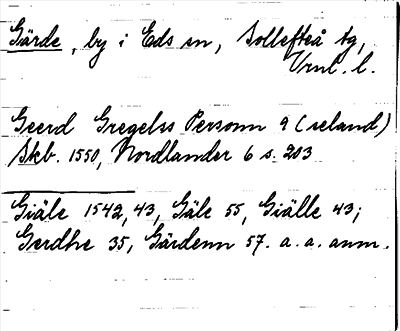 Gärde, by i Eds sn, Sollefteå tg,
Vrnl. l.
Geerd Gregelss Personn 9 (seland)
Skb. 1550, Nordlander 6 s. 203
Giäle 1542, 43, Gäle 55, Giälle 43;
Gerdhe 35, Gärdenn 57. a. a. anm.